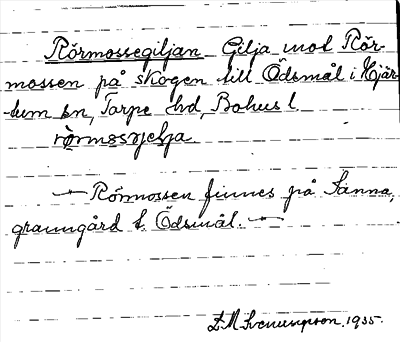 Rörmossegiljan Gilja mot Rör-
mossen på skogen till Ödsmål i Hjär-
tum sn, Torpe hd, Bohus l.
— Rörmossen finnes på Sanna,
granngård t. Ödsmål. —
1935.